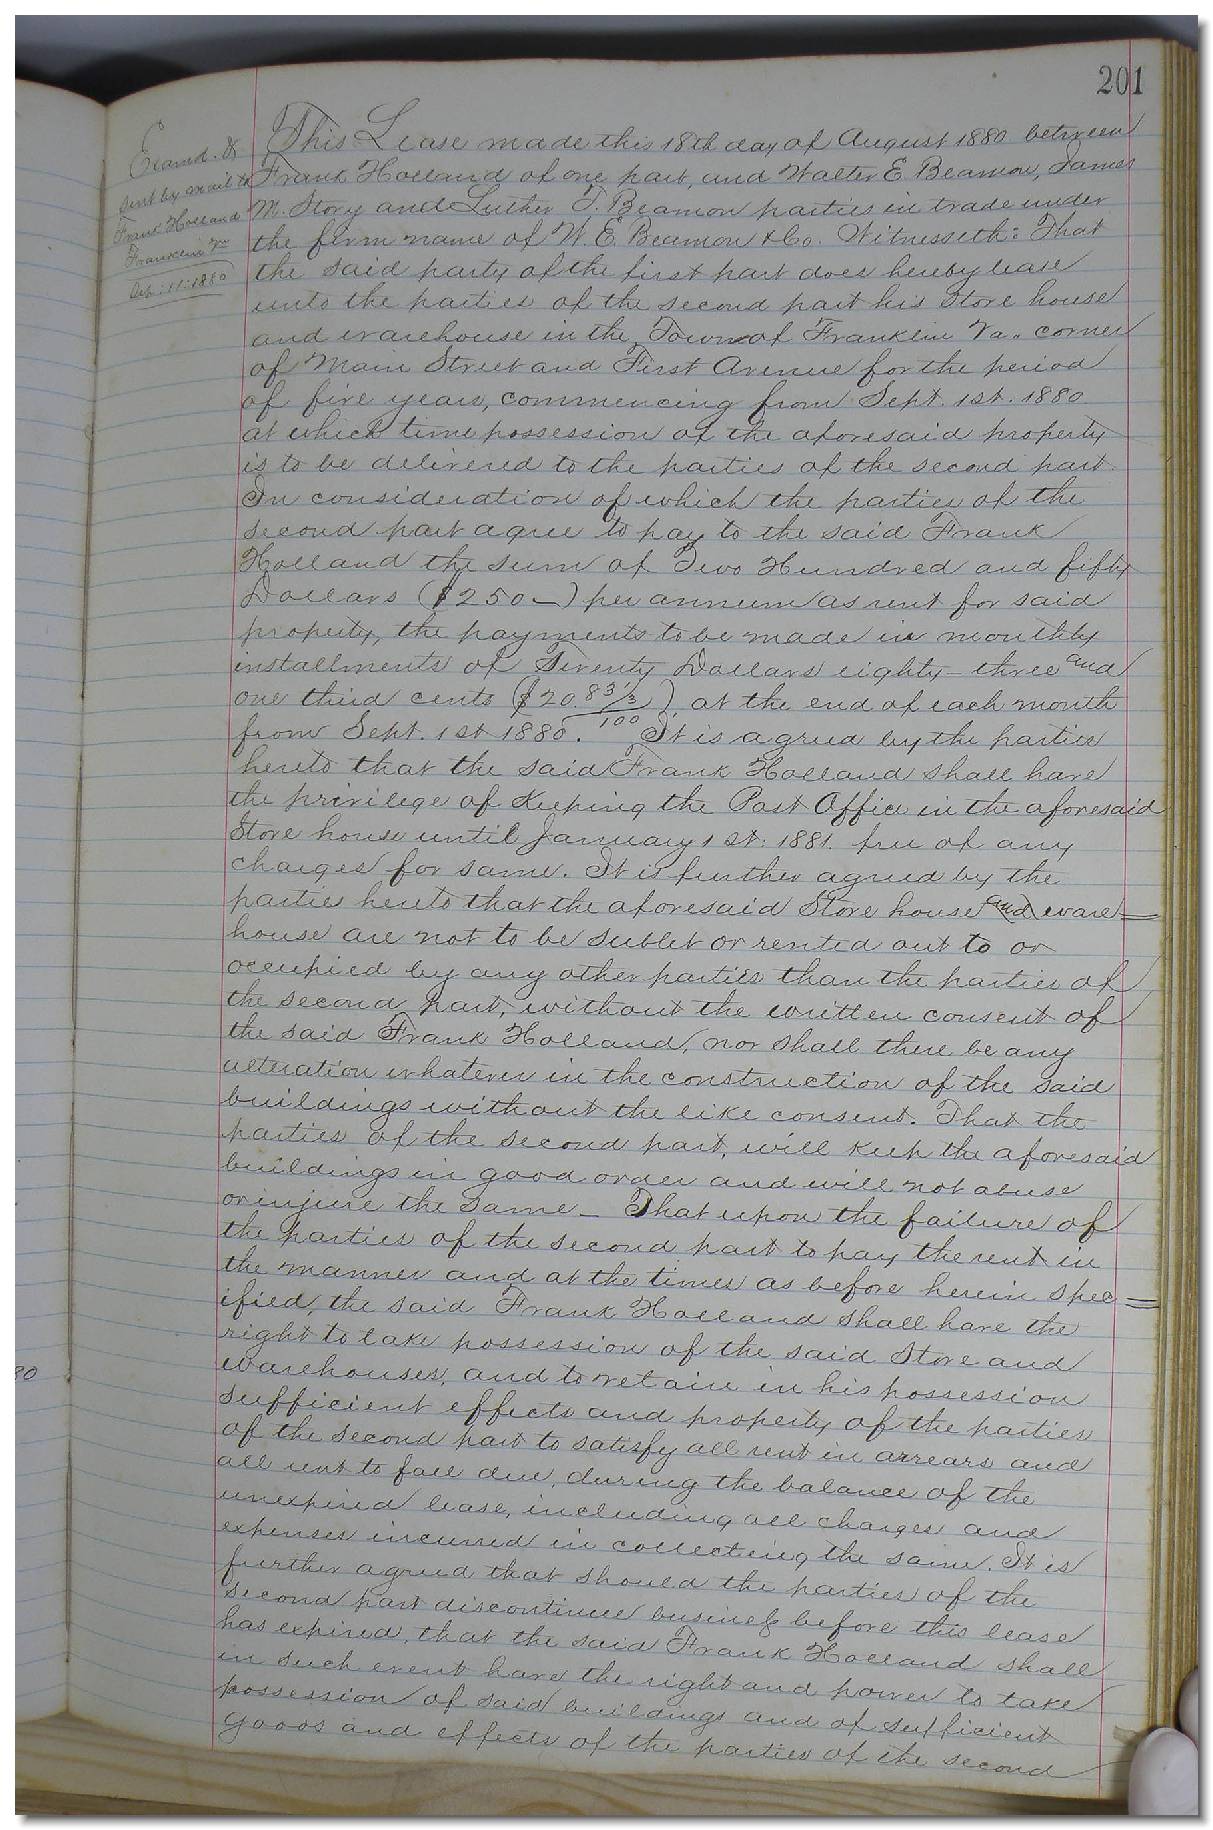 201
Examd. &
sent by mail to
Frank Holland
Franklin Va
11. 1880
This Lease made this 18th day of August 1880 between
Frank Holland of one part, and Walter E. Beamon, James
M. Story and Luther T. Beamon parties in trade under
the firm name of W. E. Beamon & Co. Witnesseth: That
the said party of the first part does hereby lease
unto the parties of the second part his Store house
and warehouse in the Town of Franklin Va. corner
of Main Street and First Avenue for the period
of five years, commencing from Sept. 1st. 1880
at which time possession of the aforesaid property
is to be delivered to the parties of the second part.
In consideration of which the parties of the
second part agree to pay to the said Frank
Holland the sum of Two Hundred and fifty
Dollars ($250—) per annum as rent for said
property, the payments to be made in monthly
installments of Twenty Dollars eighty-three and
one third cents ($20.83⅓/100) at the end of each month
from Sept. 1st 1880. It is agreed by the parties
hereto that the said Frank Holland shall have
the privilege of Keeping the Post Office in the aforesaid
Store house until January 1st. 1881. free of any
charges for same. It is further agreed by the
parties hereto that the aforesaid Store house and ware=
house are not to be sublet or rented out to or
occupied by any other parties than the parties of
the second part, without the written consent of
the said Frank Holland, nor shall there be any
alteration whatever in the construction of the said
buildings without the like consent. That the
parties of the second part, will keep the aforesaid
buildings in good order and will not abuse
or injure the same — That upon the failure of
the parties of the second part to pay the rent in
the manner and at the times as before herein spec=
ified, the said Frank Holland shall have the
right to take possession of the said Store and
warehouses, and to retain in his possession
sufficient effects and property of the parties
of the second part to satisfy all rent in arrears and
all rent to fall due, during the balance of the
unexpired lease, including all charges and
expenses incurred in collecting the same. It is
further agreed that should the parties of the
second part discontinue business before this lease
has expired, that the said Frank Holland shall
in such event have the right and power to take
possession of said buildings and of sufficient
goods and effects of the parties of the second
80